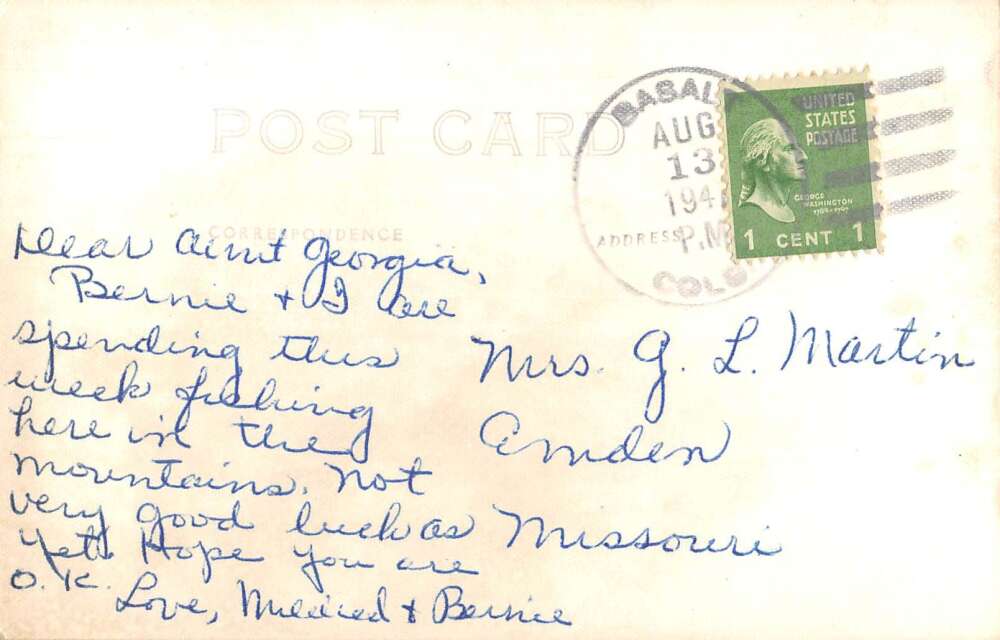 POST CARD
CORRESPONDENCE
ADDRESS
BASALT
AUG
13
194
P.M.
COLO
UNITED
STATES
POSTAGE
GEORGE
WASHINGTON
1 CENT 1
Dear Aunt Georgia,
Bernie + I are
spending this
week fishing
here in the
mountains. Not
very good luck as
yet. Hope you are
O.K.
Love, Mildred + Bernie
Mrs. G. L. Martin
Amden
Missouri